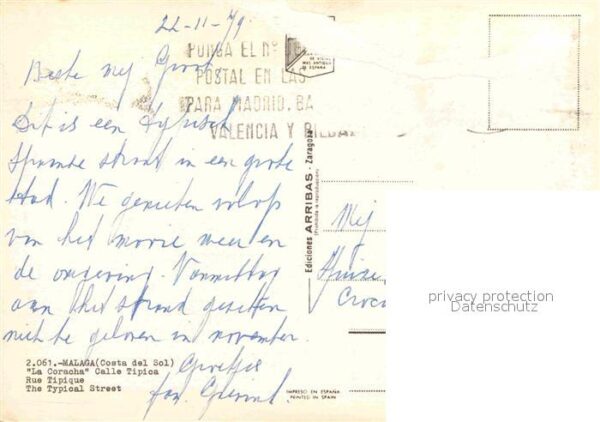 22-11-79
PONGA EL Nº
POSTAL EN LAS
PARA MADRID, BA
VALENCIA Y BILBA
Beste mej Groot
Dit is een typisch
Spaanse straat in een grote
stad. We genieten volop
van het mooie weer en
de omgeving. Vanmiddag
aan het strand gezeten
niet te geloven in november.
Groetjes
fam.
2.061.-MALAGA(Costa del Sol)
"La Coracha" Calle Típica
Rue Tipique
The Typical Street
Ediciones ARRIBAS - Zaragoza
(Prohibida la reproducción)
IMPRESO EN ESPAÑA
PRINTED IN SPAIN
Mej
privacy protection
Datenschutz